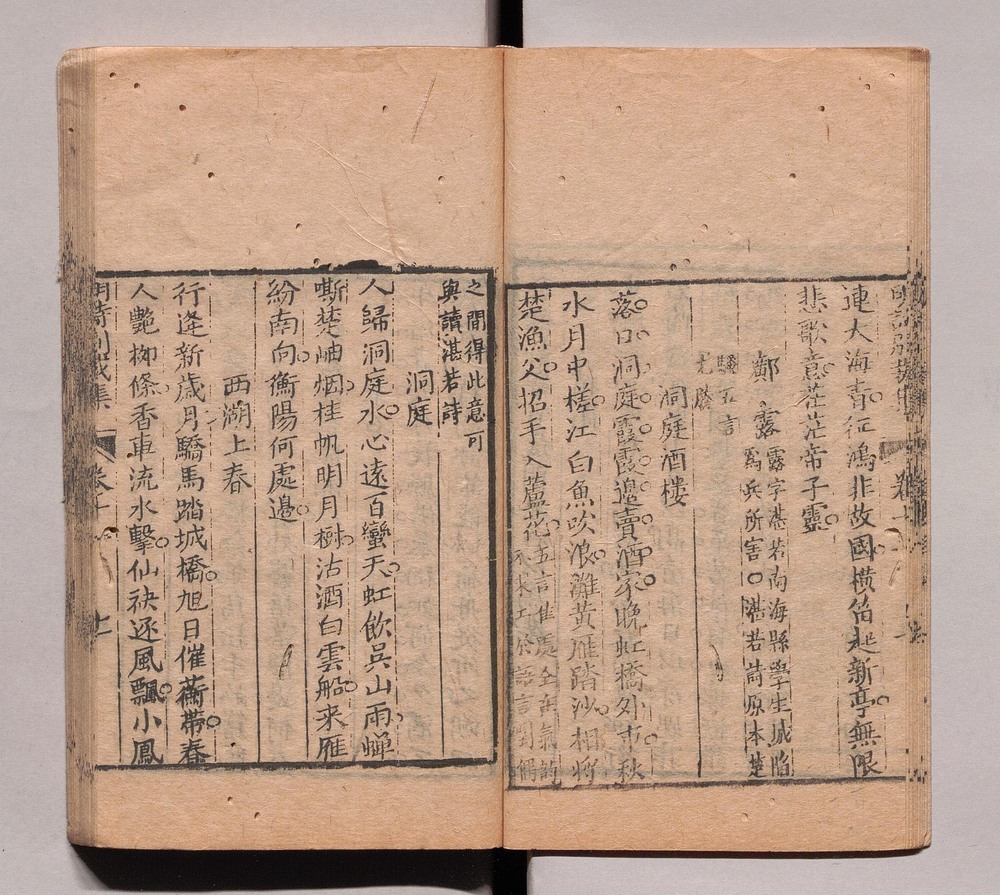 連大海青征鴻非故國橫笛起新亭無限
悲歌意茫茫帝子靈
鄺露
露字湛若南海縣學生城陷
為兵所害○湛若詩原本楚
騷五言
尤勝
洞庭酒樓
落日洞庭霞霞邊賣酒家晚虹橋外市秋
水月中槎江白魚吹浪灘黃雁踏沙相將
楚漁父招手入蘆花
五言佳處全在氣韵
不求工於語言對偶
之間得此意可
與讀湛若詩
洞庭
人歸洞庭水心遠百蠻天虹飲吳山雨蟬
嘶楚岫烟桂帆明月樹沽酒白雲船來雁
紛南向衡陽何處邊
西湖上春
行逢新歲月驕馬踏城橋旭日催蘅帶春
人艷柳條香車流水擊仙袂逐風飄小鳳
明詩別裁集 卷十 十一